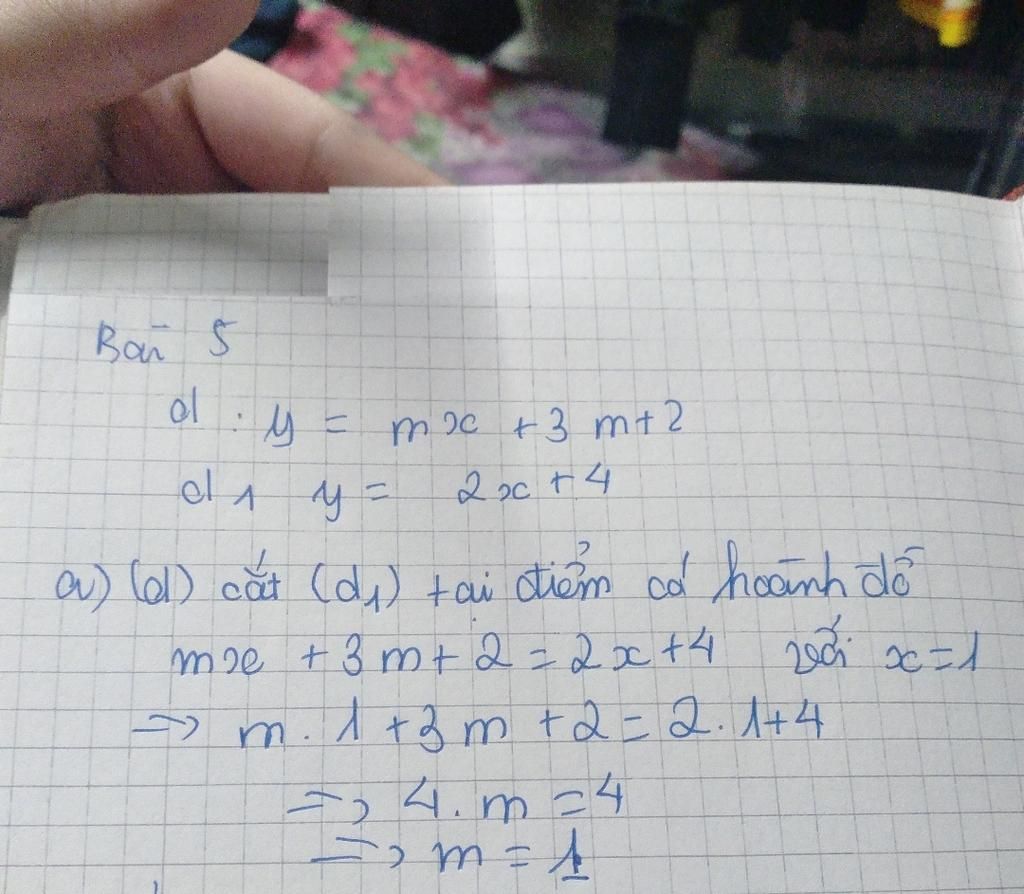 Bài 5
d : y = mx + 3 m + 2
d1 y = 2x + 4
a) (d) cắt (d1) tại điểm có hoành độ
mx + 3 m + 2 = 2x + 4 với x = 1
=> m . 1 + 3 m + 2 = 2 . 1 + 4
=> 4 . m = 4
=> m = 1